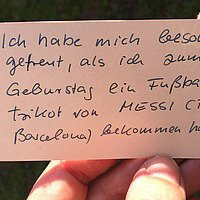 Ich habe mich beso
gefreut, als ich zum
Geburtstag ein Fußba
trikot von MESSI (
Barcelona) bekommen ha